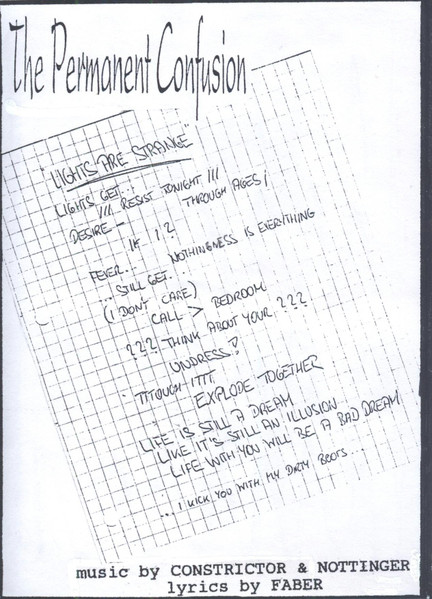 The Permanent Confusion
"LIGHTS ARE STRANGE"
LIGHTS GET...
!!! RESIST TONIGHT !!!
DESIRE — THROUGH AGES!
IF I ?
FEVER... NOTHINGNESS IS EVERYTHING
...STILL GET...
(I DONT CARE)
CALL > BEDROOM
??? THINK ABOUT YOUR ???
UNDRESS?
EXPLODE TOGETHER
LIFE IS STILL A DREAM
LIKE IT'S STILL AN ILLUSION
LIFE WITH YOU WILL BE A BAD DREAM
... I KICK YOU WITH MY DIRTY BOOTS ...
music by CONSTRICTOR & NOTTINGER
lyrics by FABER